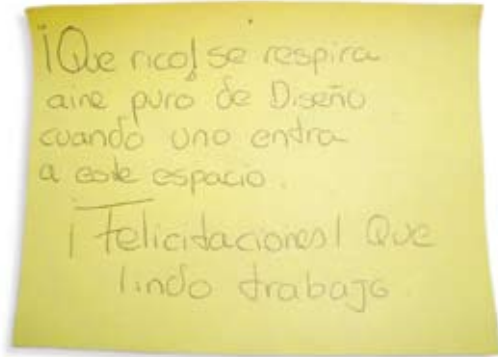 ¡Que rico! se respira
aire puro de Diseño
cuando uno entra
a este espacio.
¡Felicitaciones! Que
lindo trabajo.